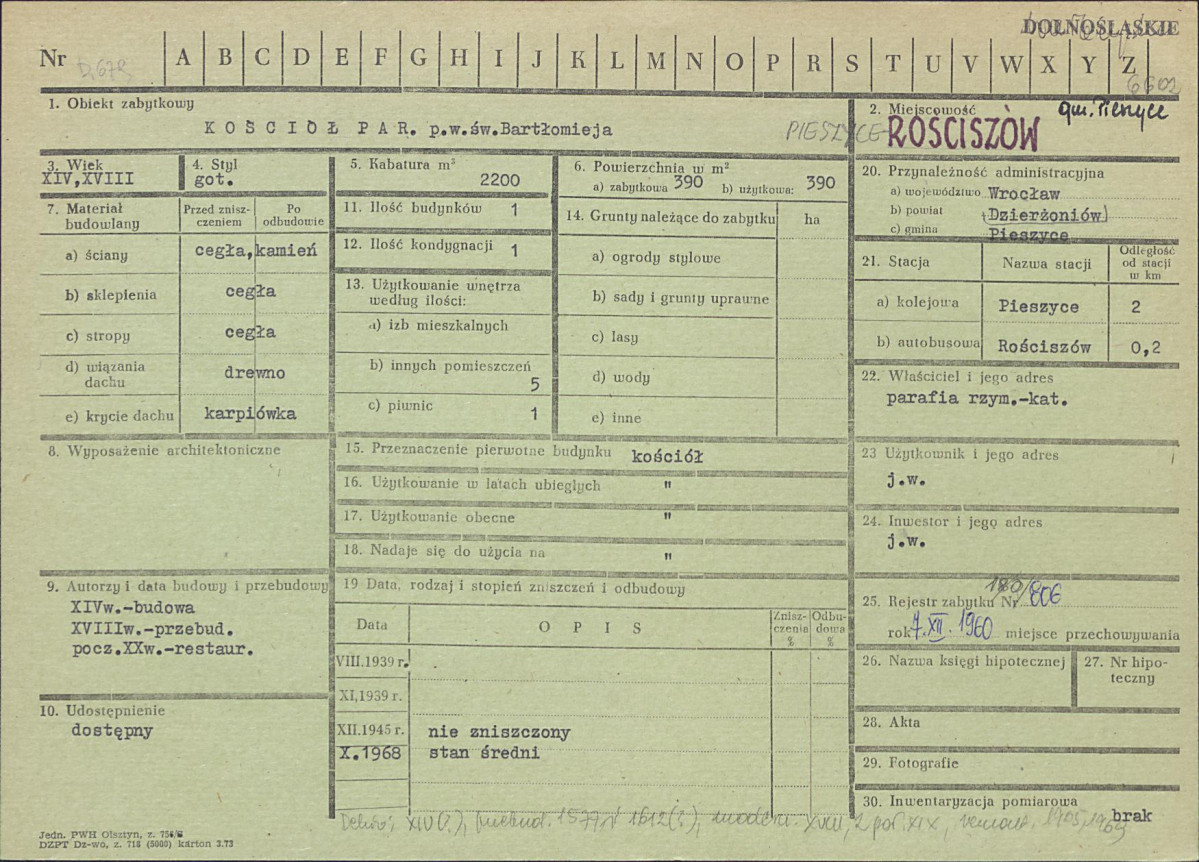 DOLNOŚLĄSKIE
Nr A B C D E F G H I J K L M N O P R S T U V W X Y Z
6602
1. Obiekt zabytkowy
KOŚCIÓŁ PAR. p.w.św.Bartłomieja
2. Miejscowość gm. Pieszyce
PIESZYCE - ROŚCISZÓW
3. Wiek
XIV,XVIII
4. Styl
got.
5. Kabatura m³
2200
6. Powierzchnia w m²
a) zabytkowa 390 b) użytkowa: 390
7. Materiał budowlany
Przed zniszczeniem
Po odbudowie
a) ściany cegła,kamień
b) sklepienia cegła
c) stropy cegła
d) wiązania dachu drewno
e) krycie dachu karpiówka
11. Ilość budynków 1
12. Ilość kondygnacji 1
13. Użytkowanie wnętrza
według ilości:
a) izb mieszkalnych
b) innych pomieszczeń
5
c) piwnic 1
14. Grunty należące do zabytku ha
a) ogrody stylowe
b) sady i grunty uprawne
c) lasy
d) wody
e) inne
20. Przynależność administracyjna
a) województwo Wrocław
b) powiat (Dzierżoniów)
c) gmina Pieszyce
21. Stacja Nazwa stacji Odległość od stacji w km
a) kolejowa Pieszyce 2
b) autobusowa Rościszów 0,2
22. Właściciel i jego adres
parafia rzym.-kat.
8. Wyposażenie architektoniczne
15. Przeznaczenie pierwotne budynku kościół
16. Użytkowanie w latach ubiegłych "
17. Użytkowanie obecne "
18. Nadaje się do użycia na "
23 Użytkownik i jego adres
j.w.
24. Inwestor i jego adres
j.w.
9. Autorzy i data budowy i przebudowy
XIVw.-budowa
XVIIIw.-przebud.
pocz.XXw.-restaur.
10. Udostępnienie
dostępny
19 Data, rodzaj i stopień zniszczeń i odbudowy
Data OPIS Zniszczenia % Odbudowa %
VIII.1939 r.
XI,1939 r.
XII.1945 r. nie zniszczony
X.1968 stan średni
180/806
25. Rejestr zabytku Nr
rok 7.XII.1960 miejsce przechowywania
26. Nazwa księgi hipotecznej
27. Nr hipoteczny
28. Akta
29. Fotografie
30. Inwentaryzacja pomiarowa
brak
XIV(?), przebud. 1577 i 1612(?), modern. XVIII, 2 poł. XIX, remont. 1905, 1969
Jedn. PWH Olsztyn, z. 751/B
DZPT Dz-wo, z. 718 (5000) karton 3.73